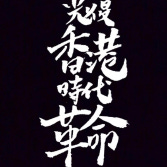 光復
香港
時代
革命